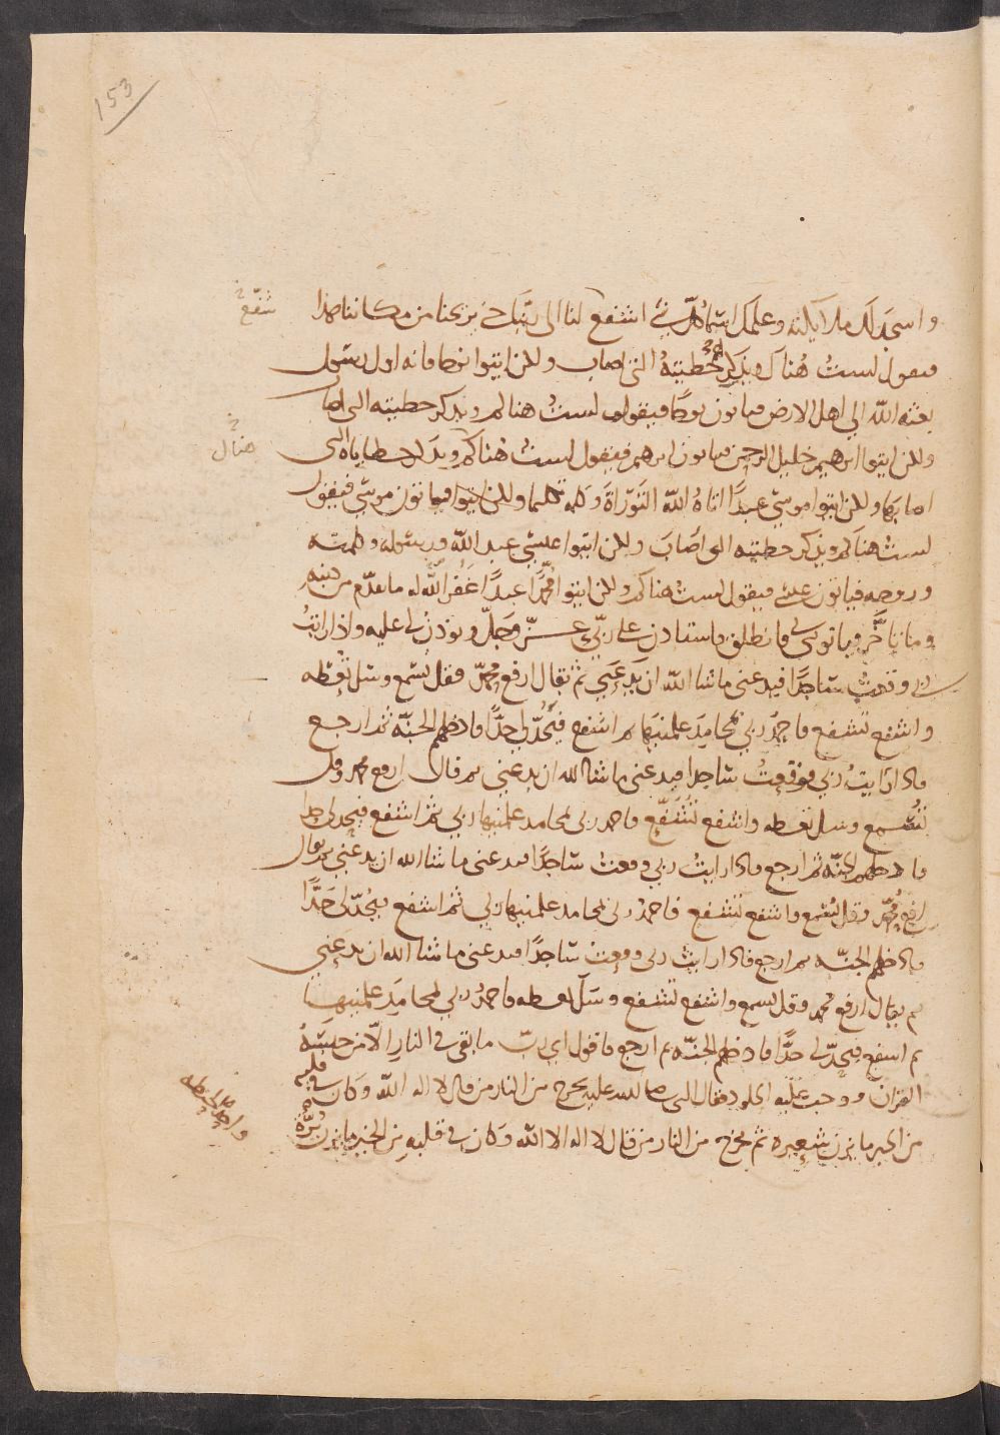 153
واسجد لك ملايكته وعلمك اسما كل شي اشفع لنا الى ربك حتى يريحنا من مكاننا هذا
شفّع
فيقول لستُ هُناك ويذكر لهم خطيته التي اصاب ولكن ايتوا نوحا فانه اول رسول
بعثه الله الى اهل الارض فياتون نوحًا فيقول لستُ هناكم ويذكر خطيته التي اصاب
ولكن ايتوا ابرهيم خليل الرحمن فياتون ابرهيم فيقول لست هُناكم ويذكر خطاياه التي
هناك
اصابها ولكن ايتوا موسى عبدًا اتاهُ الله التَورَاةَ وكلمه تكليما ولكن ايتوا فياتون موسى فيقول
لستُ هناكم ويذكر خطيته التي اصَابَ ولكن ايتوا عيسى عبد الله ورسوله وكلمته
وروحه فياتون عيسى فيقول لست هناكم ولكن ايتوا محمدًا عبدًا غَفَر الله له ما تقدّم من ذنبه
وما تاخَّر وياتوني فانطلق فاستاذن على ربّي عزّ وجلّ ويوذن لي عليه واذا رايتُ
ربي وقعتُ ساجدًا فيدعني ما شا الله ان يدعَني ثم يقال ارفع محمدُ فقل تسمع وسل تُعْطه
واشفع تشفع فاحمدُ ربي بمحامدَ علمنيها ثم اشفع فيَحُدّ لي حدًّا فادخلهم الجنّه ثم ارجع
فاذا رايتُ ربي فوقعتُ ساجدا فيدعني ما شا الله ان يدعني ثم قال ارفع محمد وقل
تُسْمع وسل تعطه واشفع تُشَفّع فاحمد ربي بمحامد علمنيها ربي ثم اشفع فيحد لي حدا
فادخلهم الجنّه ثم ارجع فاذا رايتُ ربي وقعت ساجدًا فيدعني ما شا الله ان يدعني ثم يقال
ارفع محمّد وقل تسْمع واشفع تشفع فاحمدُ ربي بمحامد علمنيها ربي ثم اشفع فيحُدّ لي حَدًّا
فادخلهم الجنّه ثم ارجع فاذا رايتُ ربي وقعتُ ساجدًا فيدعني ما شا الله ان يدعني
ثم يقال ارفع محمد وقل تسمع واشفع تشفع وسَل تعطه فاحمدُ ربي بمحامدَ علمنيها
ثم اشفع فيحدّ لي حدًّا فادخلهم الجنّه ثم ارجع فاقول اي ربّ ما بقي في النار الّا من حبسهُ
القران ووجب عليه الخلود فقال النبي صلى الله عليه يخرج من النار من قال لا اله الا الله وكان في قلبه
من الخير ما يزن شعيره ثم يخرج من النار من قال لا اله الا الله وكان في قلبه من الخير ما يزن بُرّهً